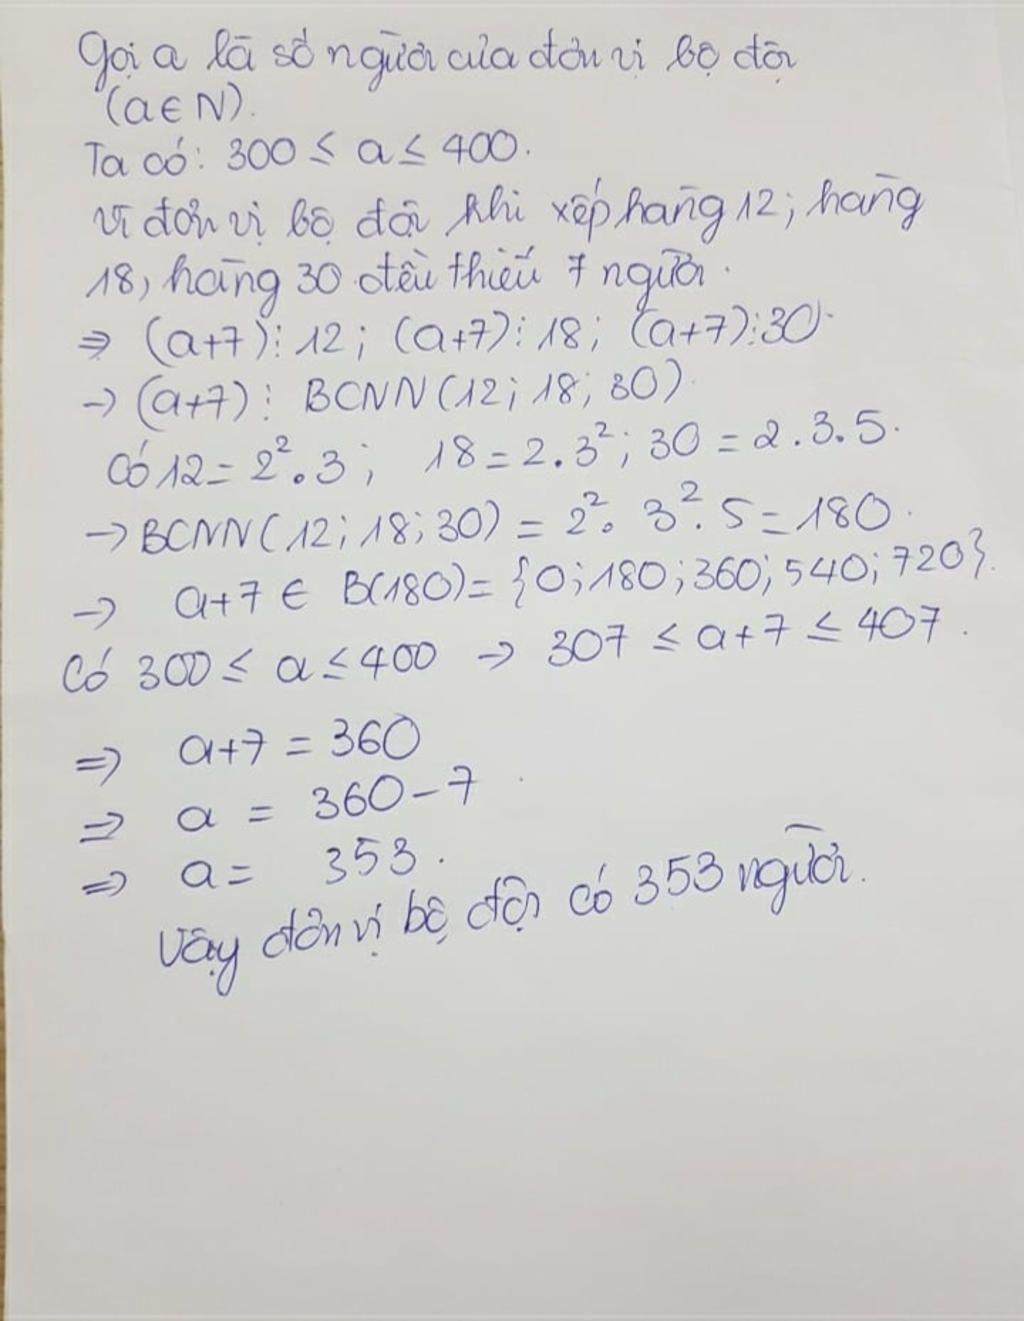 Gọi a là số người của đơn vị bộ đội
(a ∈ N).
Ta có: 300 ≤ a ≤ 400.
Vì đơn vị bộ đội khi xếp hàng 12; hàng
18, hàng 30 đều thiếu 7 người.
⇒ (a+7) ⋮ 12; (a+7) ⋮ 18; (a+7) ⋮ 30.
→ (a+7) ⋮ BCNN(12; 18; 30).
Có 12 = 2². 3; 18 = 2. 3²; 30 = 2. 3. 5.
→ BCNN(12; 18; 30) = 2². 3². 5 = 180.
→ a+7 ∈ B(180) = {0; 180; 360; 540; 720}.
Có 300 ≤ a ≤ 400 → 307 ≤ a+7 ≤ 407.
⇒ a+7 = 360
⇒ a = 360 - 7
⇒ a = 353.
Vậy đơn vị bộ đội có 353 người.